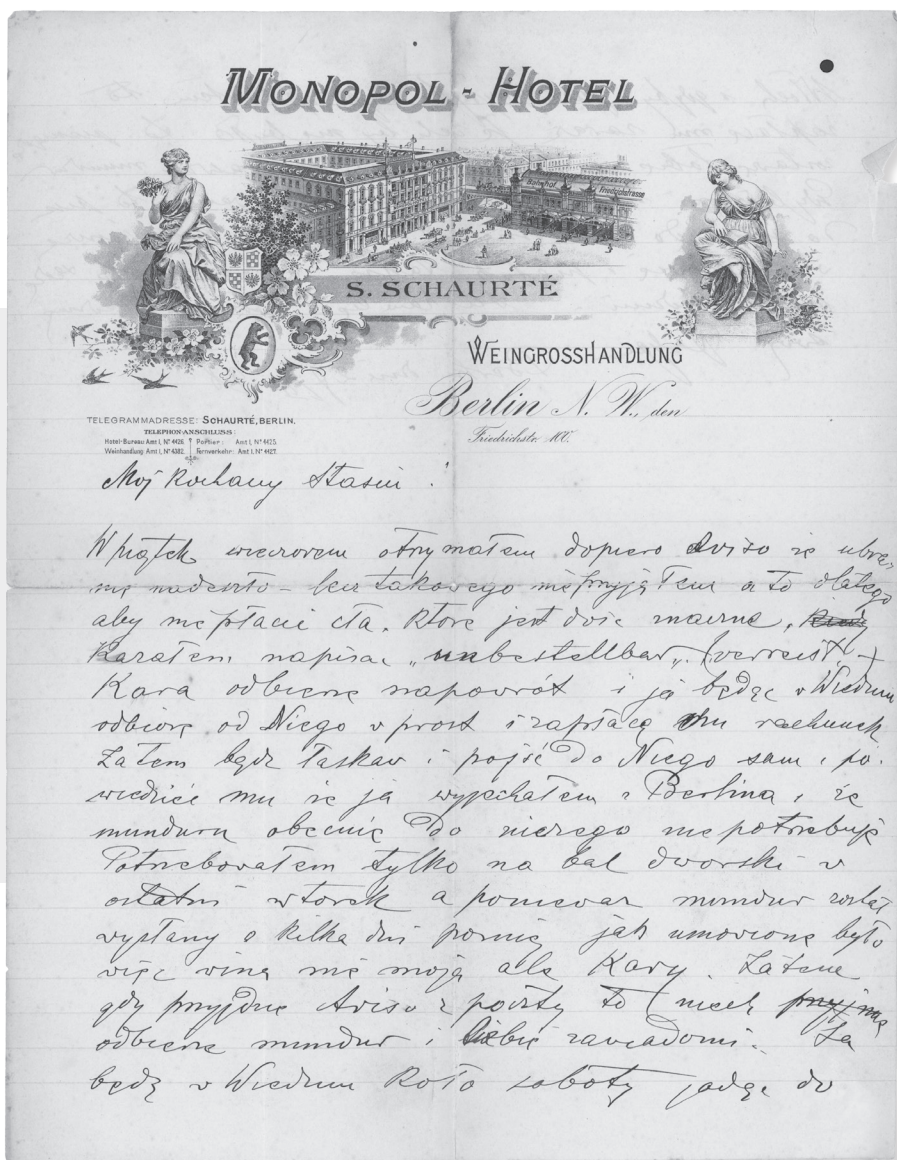 MONOPOL - HOTEL
Bahnhof Friedrichstrasse
S. SCHAURTÉ
WEINGROSSHANDLUNG
Berlin N. W., den
Friedrichstr. 100.
TELEGRAMMADRESSE: SCHAURTÉ, BERLIN.
TELEPHON-ANSCHLUSS:
Hotel-Bureau Amt I, Nº 4426. Portier: Amt I, Nº 4425.
Weinhandlung Amt I, Nº 4382. Fernverkehr: Amt I, Nº 4427.
Mój Kochany Stasiu !
W piątek wieczorem otrzymałem dopiero Aviso że ubra-
nie nadeszło – bez takowego nie przyjąłem a to dlatego
aby nie płacić cła, które jest dość znaczne,
Kazałem napisać „unbestellbar" (verreist) –
Kara odbierze napowrót i ja będąc w Wiedniu
odbiorę od Niego wprost i zapłacę Mu rachunek
Zatem bądź łaskaw i pójść do Niego sam i po-
wiedzieć mu że ja wyjechałem z Berlina i że
munduru obecnie do niczego nie potrzebuję
Potrzebowałem tylko na bal dworski w
ostatni wtorek a ponieważ mundur został
wysłany o kilka dni później jak umówione było
więc wina nie moja ale Kary. Zatem
gdy przyjdzie Aviso z poczty to niech
odbierze mundur i Ciebie zawiadomi. Ja
będę w Wiedniu koło soboty jadąc do